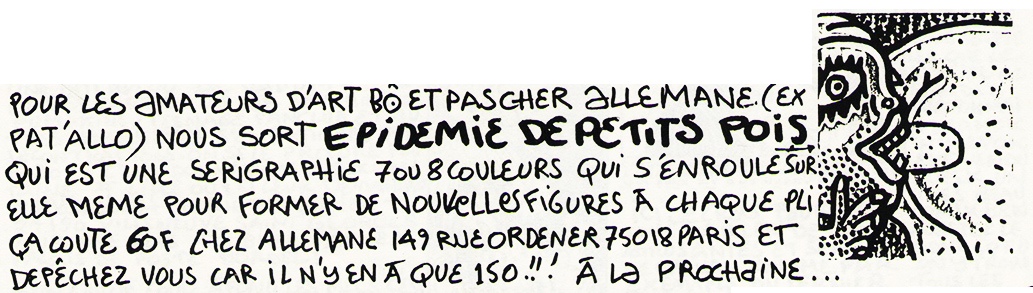 POUR LES AMATEURS D'ART BÔ ET PAS CHER ALLEMANE.(EX
PAT'ALLO) NOUS SORT EPIDEMIE DE PETITS POIS
QUI EST UNE SERIGRAPHIE 7 OU 8 COULEURS QUI S'ENROULE SUR
ELLE MEME POUR FORMER DE NOUVELLES FIGURES À CHAQUE PLI
ÇA COUTE 60F CHEZ ALLEMANE 149 RUE ORDENER 75018 PARIS ET
DEPÊCHEZ VOUS CAR iL N'Y EN À QUE 150.!!! À LA PROCHAINE...